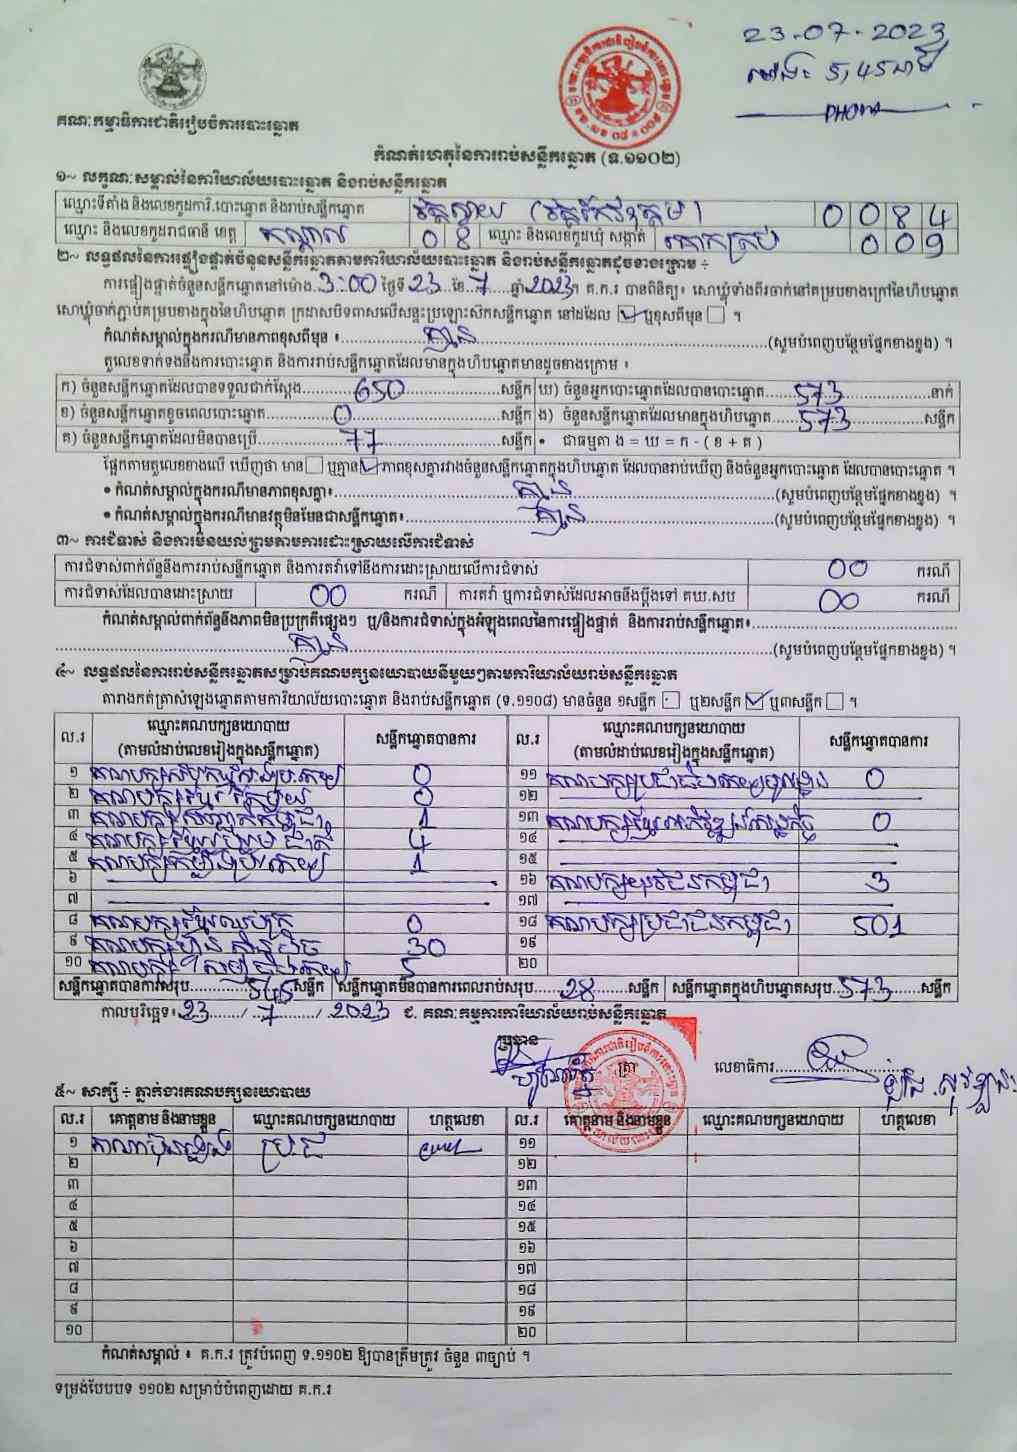 23-07-2023
ម៉ោង: 5,45នាទី
គណៈកម្មាធិការជាតិរៀបចំការបោះឆ្នោត
កំណត់ហេតុនៃការរាប់សន្លឹកឆ្នោត (ទ.១១០២)
១~ លក្ខណៈសម្គាល់នៃការិយាល័យបោះឆ្នោត និងរាប់សន្លឹកឆ្នោត
ឈ្មោះទីតាំង និងលេខកូដការិ.បោះឆ្នោត និងរាប់សន្លឹកឆ្នោត វត្តស្វាយ 0 0 8 4
ឈ្មោះ និងលេខកូដរាជធានី ខេត្ត កណ្តាល 0 8 ឈ្មោះ និងលេខកូដឃុំ សង្កាត់ គោកត្រប់ 0 0 9
២~ លទ្ធផលនៃការផ្ទៀងផ្ទាត់ចំនួនសន្លឹកឆ្នោតតាមការិយាល័យបោះឆ្នោត និងរាប់សន្លឹកឆ្នោតដូចខាងក្រោម ÷
ការផ្ទៀងផ្ទាត់ចំនួនសន្លឹកឆ្នោតនៅម៉ោង 3:00 ថ្ងៃទី 23 ខែ 7 ឆ្នាំ 2023 ។ គ.ក.រ បានពិនិត្យ៖ សោឃ្លុំទាំងពីរចាក់នៅគម្របខាងក្រៅនៃហិបឆ្នោត
សោឃ្លុំចាក់ភ្ជាប់គម្របខាងក្នុងនៃហិបឆ្នោត ក្រដាសបិទពាសលើសន្ទះប្រឡោះសឹកសន្លឹកឆ្នោត នៅដដែល ☑ ឬខុសពីមុន ☐ ។
កំណត់សម្គាល់ក្នុងករណីមានភាពខុសពីមុន ៖ គ្មាន (សូមបំពេញបន្ថែមផ្នែកខាងខ្នង) ។
តួលេខទាក់ទងនឹងការបោះឆ្នោត និងការរាប់សន្លឹកឆ្នោតដែលមានក្នុងហិបឆ្នោតមានដូចខាងក្រោម ៖
ក) ចំនួនសន្លឹកឆ្នោតដែលបានទទួលជាក់ស្តែង 650 សន្លឹក ឃ) ចំនួនអ្នកបោះឆ្នោតដែលបានបោះឆ្នោត 573 នាក់
ខ) ចំនួនសន្លឹកឆ្នោតខូចពេលបោះឆ្នោត 0 សន្លឹក ង) ចំនួនសន្លឹកឆ្នោតដែលមានក្នុងហិបឆ្នោត 573 សន្លឹក
គ) ចំនួនសន្លឹកឆ្នោតដែលមិនបានប្រើ 77 សន្លឹក • ជាធម្មតា ង = ឃ = ក - ( ខ + គ )
ផ្អែកតាមតួលេខខាងលើ ឃើញថា មាន ☐ ឬគ្មាន ☑ ភាពខុសគ្នារវាងចំនួនសន្លឹកឆ្នោតក្នុងហិបឆ្នោត ដែលបានរាប់ឃើញ និងចំនួនអ្នកបោះឆ្នោត ដែលបានបោះឆ្នោត ។
• កំណត់សម្គាល់ក្នុងករណីមានភាពខុសគ្នា៖ គ្មាន (សូមបំពេញបន្ថែមផ្នែកខាងខ្នង) ។
• កំណត់សម្គាល់ក្នុងករណីមានវត្ថុមិនមែនជាសន្លឹកឆ្នោត៖ គ្មាន (សូមបំពេញបន្ថែមផ្នែកខាងខ្នង) ។
៣~ ការជំទាស់ និងការមិនយល់ព្រមតាមការដោះស្រាយលើការជំទាស់
ការជំទាស់ពាក់ព័ន្ធនឹងការរាប់សន្លឹកឆ្នោត និងការតវ៉ាទៅនឹងការដោះស្រាយលើការជំទាស់ 00 ករណី
ការជំទាស់ដែលបានដោះស្រាយ 00 ករណី ការតវ៉ា ឬការជំទាស់ដែលអាចនឹងប្តឹងទៅ គឃ.សប 00 ករណី
កំណត់សម្គាល់ពាក់ព័ន្ធនឹងភាពមិនប្រក្រតីផ្សេងៗ ឬ/និងការជំទាស់ក្នុងអំឡុងពេលនៃការផ្ទៀងផ្ទាត់ និងការរាប់សន្លឹកឆ្នោត៖
គ្មាន (សូមបំពេញបន្ថែមផ្នែកខាងខ្នង) ។
៤~ លទ្ធផលនៃការរាប់សន្លឹកឆ្នោតសម្រាប់គណបក្សនយោបាយនីមួយៗតាមការិយាល័យរាប់សន្លឹកឆ្នោត
តារាងកត់ត្រាសំឡេងឆ្នោតតាមការិយាល័យបោះឆ្នោត និងរាប់សន្លឹកឆ្នោត (ទ.១១០៨) មានចំនួន ១សន្លឹក ☐ ឬ២សន្លឹក ☑ ឬ៣សន្លឹក ☐ ។
ល.រ ឈ្មោះគណបក្សនយោបាយ (តាមលំដាប់លេខរៀងក្នុងសន្លឹកឆ្នោត) សន្លឹកឆ្នោតបានការ ល.រ ឈ្មោះគណបក្សនយោបាយ (តាមលំដាប់លេខរៀងក្នុងសន្លឹកឆ្នោត) សន្លឹកឆ្នោតបានការ
១ គណបក្សសំបុកឃ្មុំសង្គមប្រជាធិបតេយ្យ 0 ១១ គណបក្សប្រជាធិបតេយ្យមូលដ្ឋាន 0
២ គណបក្សខ្មែរ 0 ១២
៣ គណបក្សសញ្ជាតិកម្ពុជា 1 ១៣ គណបក្សខ្មែរអភិវឌ្ឍន៍សេដ្ឋកិច្ច 0
៤ គណបក្សខ្មែររួបរួមជាតិ 4 ១៤
៥ គណបក្សកម្លាំងប្រជាធិបតេយ្យ 1 ១៥
៦ ១៦ គណបក្សយុវជនកម្ពុជា 3
៧ ១៧
៨ គណបក្សខ្មែរ 0 ១៨ គណបក្សប្រជាជនកម្ពុជា 501
៩ គណបក្សហ៊្វុនស៊ិនប៉ិច 30 ១៩
១០ គណបក្ស 5 ២០
សន្លឹកឆ្នោតបានការសរុប 545 សន្លឹក សន្លឹកឆ្នោតមិនបានការពេលរាប់សរុប 28 សន្លឹក សន្លឹកឆ្នោតក្នុងហិបឆ្នោតសរុប 573 សន្លឹក
កាលបរិច្ឆេទ៖ 23 / 7 / 2023 ជ. គណៈកម្មការការិយាល័យរាប់សន្លឹកឆ្នោត
ប្រធាន ត្រា លេខាធិការ
៥~ សាក្សី ÷ ភ្នាក់ងារគណបក្សនយោបាយ
ល.រ គោត្តនាម និងនាមខ្លួន ឈ្មោះគណបក្សនយោបាយ ហត្ថលេខា ល.រ គោត្តនាម និងនាមខ្លួន ឈ្មោះគណបក្សនយោបាយ ហត្ថលេខា
១ ប្រ.ជ ១១
២ ១២
៣ ១៣
៤ ១៤
៥ ១៥
៦ ១៦
៧ ១៧
៨ ១៨
៩ ១៩
១០ ២០
កំណត់សម្គាល់ ៖ គ.ក.រ ត្រូវបំពេញ ទ.១១០២ ឱ្យបានត្រឹមត្រូវ ចំនួន ៣ច្បាប់ ។
ទម្រង់បែបបទ ១១០២ សម្រាប់បំពេញដោយ គ.ក.រ